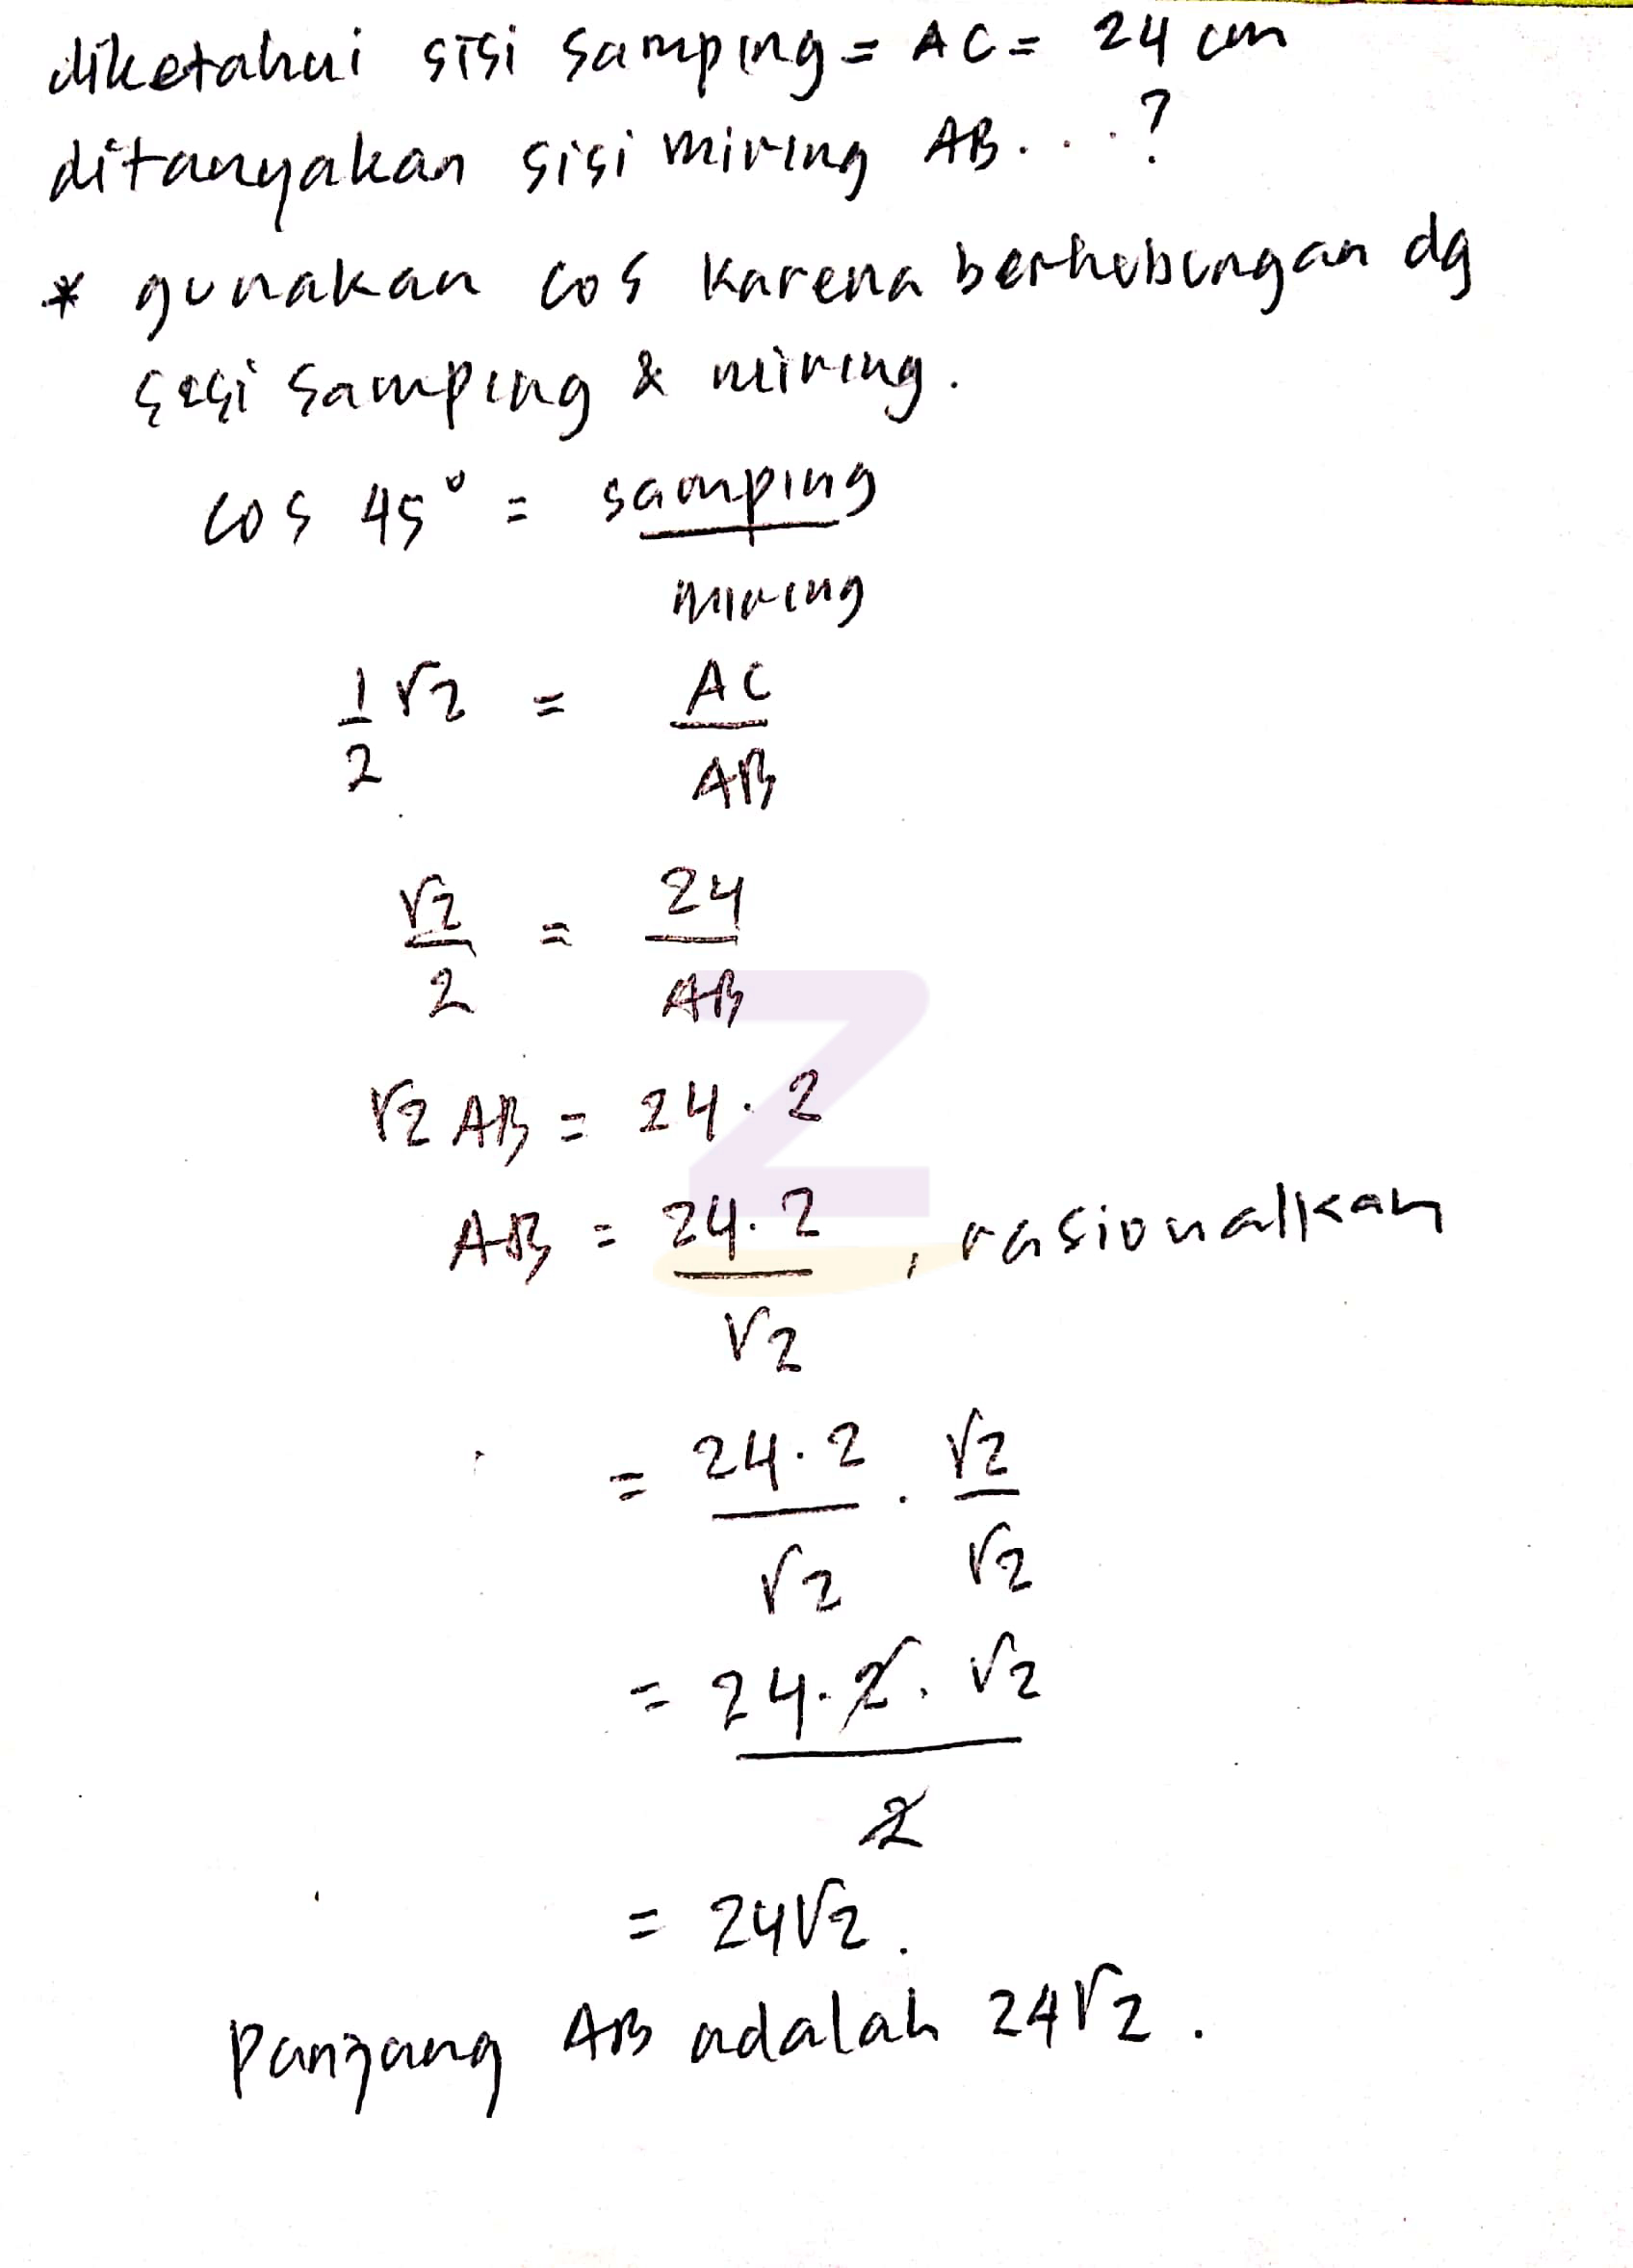 diketahui sisi samping = AC = 24 cm
ditanyakan sisi miring AB . . . ?
* gunakan cos karena berhubungan dg
sisi samping & miring.
cos 45° = samping
miring
1/2 √2 = AC/AB
√2/2 = 24/AB
√2 AB = 24 . 2
AB = 24 . 2/√2 , rasionalkan
= 24 . 2/√2 . √2/√2
= 24 . 2 . √2/2
= 24√2 .
Panjang AB adalah 24√2 .